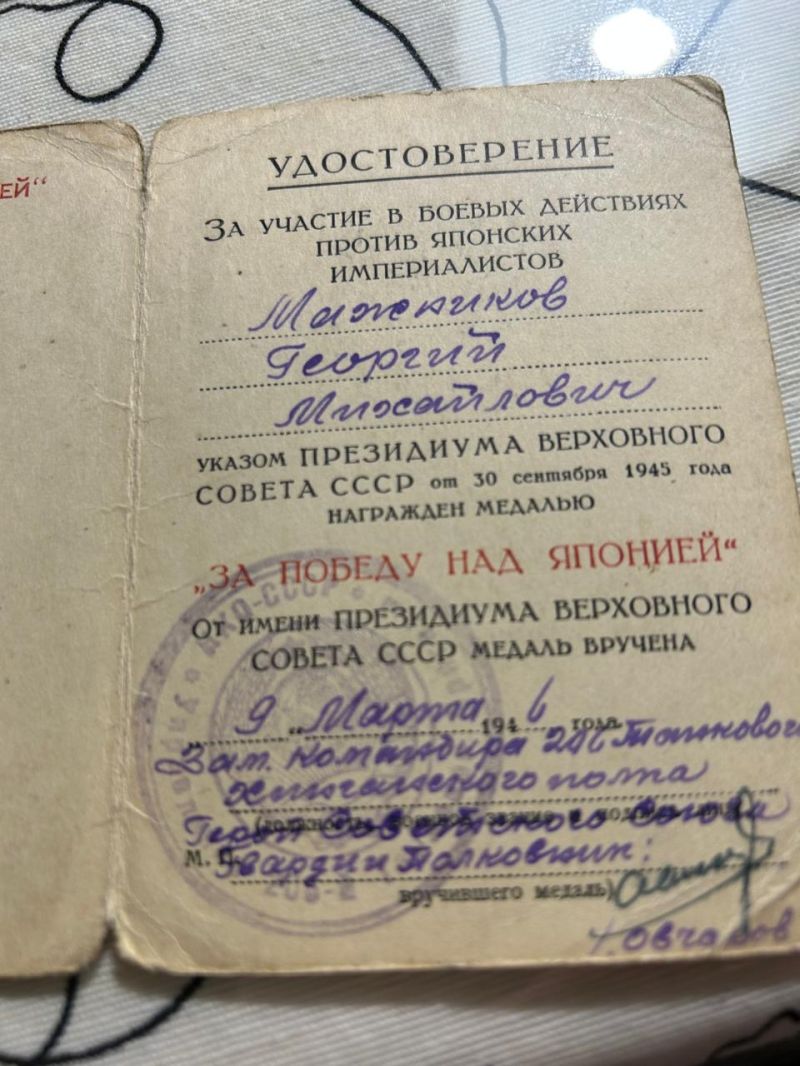 ЕЙ“
УДОСТОВЕРЕНИЕ
ЗА УЧАСТИЕ В БОЕВЫХ ДЕЙСТВИЯХ
ПРОТИВ ЯПОНСКИХ
ИМПЕРИАЛИСТОВ
Мажников
Георгий
Михайлович
УКАЗОМ ПРЕЗИДИУМА ВЕРХОВНОГО
СОВЕТА СССР от 30 сентября 1945 года
НАГРАЖДЕН МЕДАЛЬЮ
„ЗА ПОБЕДУ НАД ЯПОНИЕЙ“
ОТ ИМЕНИ ПРЕЗИДИУМА ВЕРХОВНОГО
СОВЕТА СССР МЕДАЛЬ ВРУЧЕНА
9 „ Марта 1946 года
Зам. командира 206 Танкового
Хинганского полка
Герой Советского Союза
М. П. Гвардии Полковник:
вручившего медаль)
Овчаров
НКО-СССР